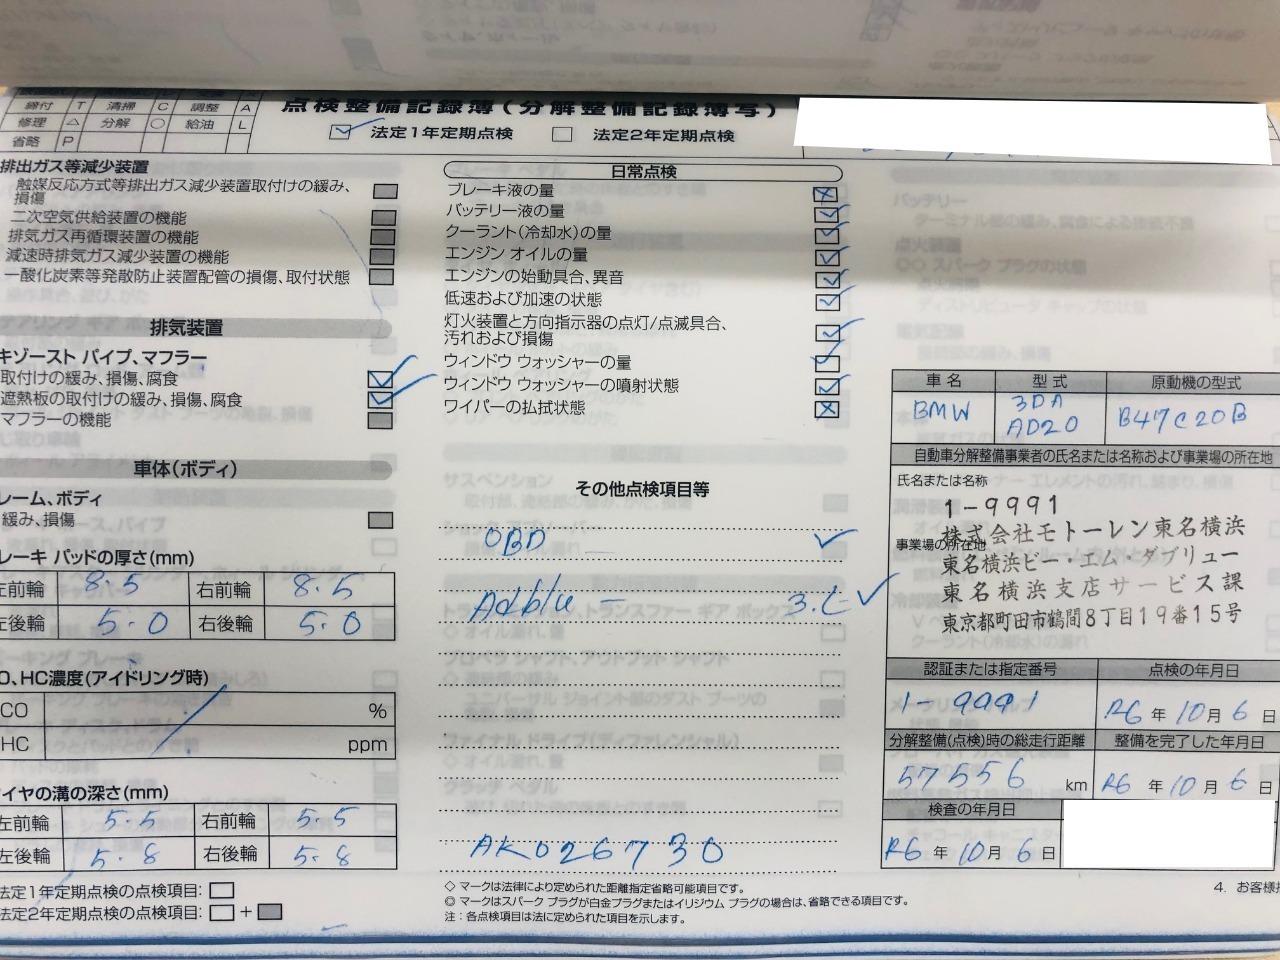 締付 T 清掃 C 調整 A
修理 △ 分解 ○ 給油 L
省略 P
点検整備記録簿(分解整備記録簿写)
法定1年定期点検 法定2年定期点検
排出ガス等減少装置
触媒反応方式等排出ガス減少装置取付けの緩み、
損傷
二次空気供給装置の機能
排気ガス再循環装置の機能
減速時排気ガス減少装置の機能
一酸化炭素等発散防止装置配管の損傷、取付状態
排気装置
キゾースト パイプ、マフラー
取付けの緩み、損傷、腐食
遮熱板の取付けの緩み、損傷、腐食
マフラーの機能
車体(ボディ)
レーム、ボディ
緩み、損傷
レーキ パッドの厚さ(mm)
左前輪 8.5 右前輪 8.5
左後輪 5.0 右後輪 5.0
O、HC濃度(アイドリング時)
CO %
HC ppm
イヤの溝の深さ(mm)
左前輪 5.5 右前輪 5.5
左後輪 5.8 右後輪 5.8
法定1年定期点検の点検項目:
法定2年定期点検の点検項目: +
日常点検
ブレーキ液の量
バッテリー液の量
クーラント(冷却水)の量
エンジン オイルの量
エンジンの始動具合、異音
低速および加速の状態
灯火装置と方向指示器の点灯/点滅具合、
汚れおよび損傷
ウィンドウ ウォッシャーの量
ウィンドウ ウォッシャーの噴射状態
ワイパーの払拭状態
その他点検項目等
OBD
Adblue - 3.L
AK026730
◇ マークは法律により定められた距離指定省略可能項目です。
◎ マークはスパーク プラグが白金プラグまたはイリジウム プラグの場合は、省略できる項目です。
注:各点検項目は法に定められた項目を示します。
車名 型式 原動機の型式
BMW 3DA B47C20B
AD20
自動車分解整備事業者の氏名または名称および事業場の所在地
氏名または名称
1-9991
株式会社モトーレン東名横浜
事業場の所在地
東名横浜ビー・エム・ダブリュー
東名横浜支店サービス課
東京都町田市鶴間8丁目19番15号
認証または指定番号 点検の年月日
1-9991 R6年10月6日
分解整備(点検)時の総走行距離 整備を完了した年月日
57556 km R6年10月6日
検査の年月日
R6年10月6日
4. お客様